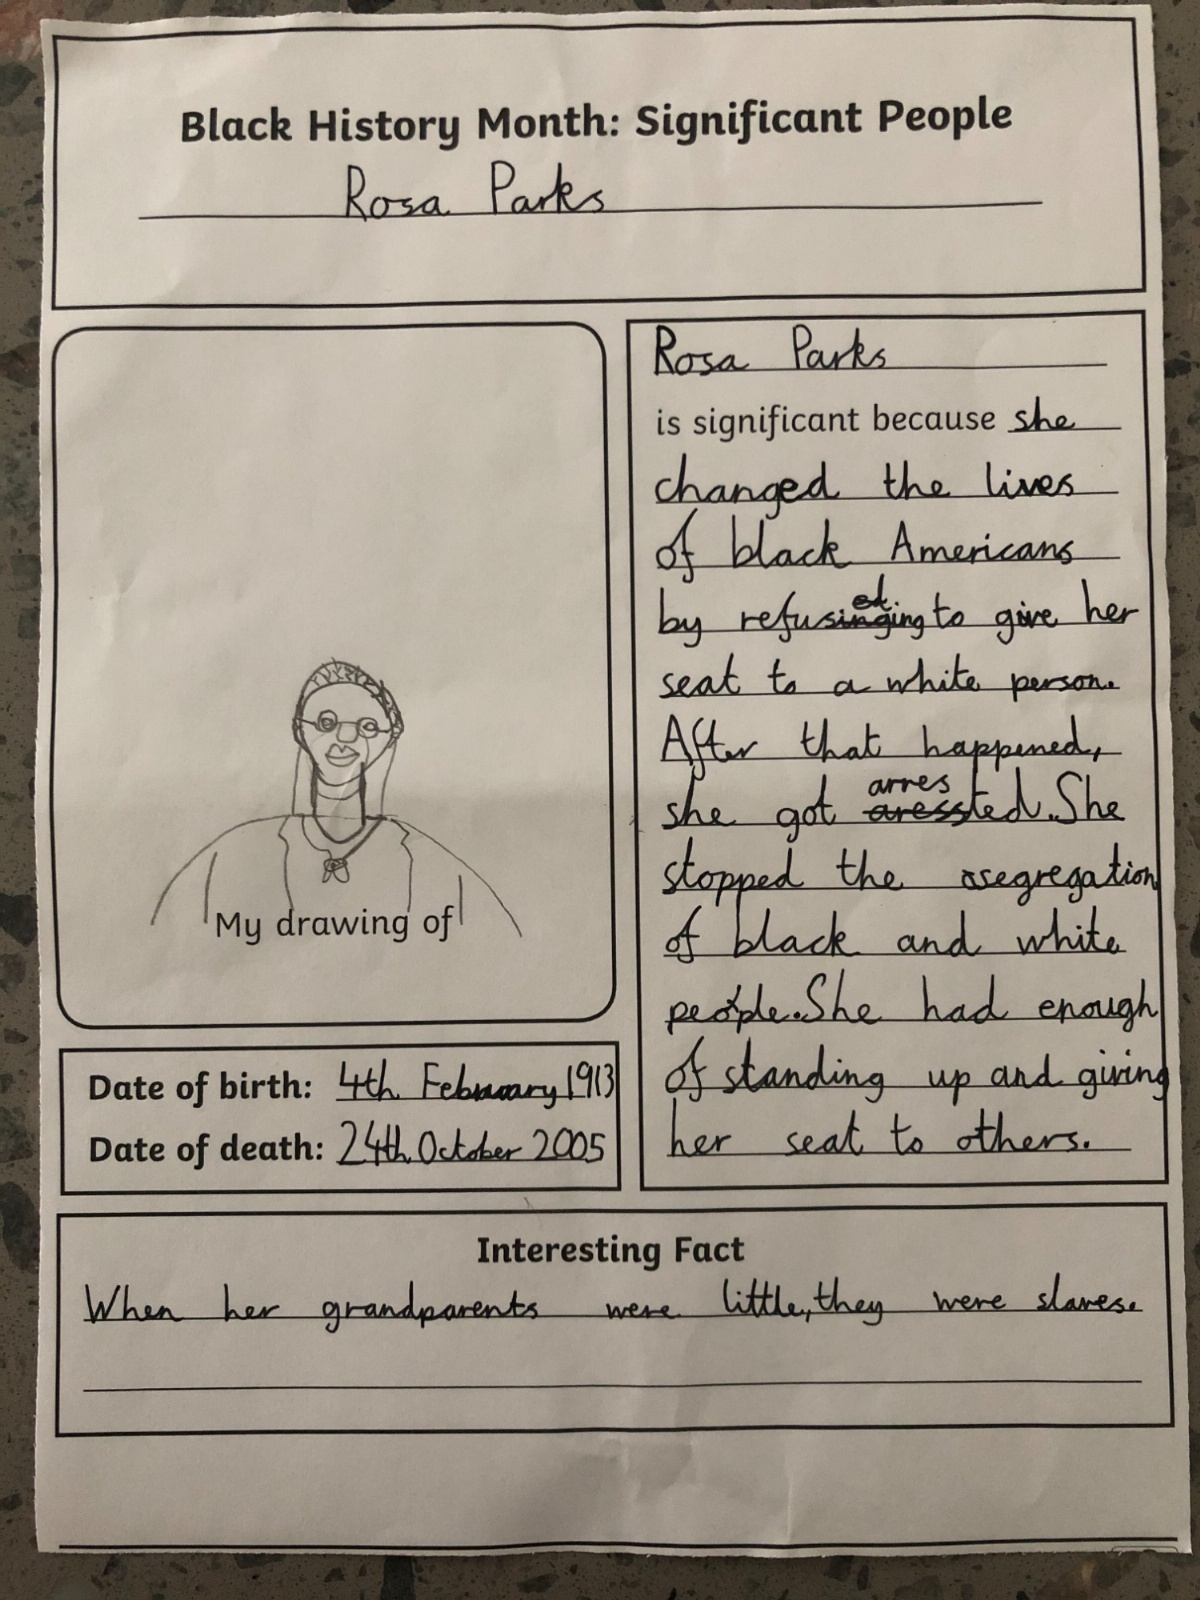 Black History Month: Significant People
Rosa Parks
Rosa Parks
is significant because she
changed the lives
of black Americans
by refusing to give her
seat to a white person.
After that happened,
she got arrested. She
stopped the segregation
of black and white
people. She had enough
of standing up and giving
her seat to others.
My drawing of
Date of birth: 4th February 1913
Date of death: 24th October 2005
Interesting Fact
When her grandparents were little, they were slaves.